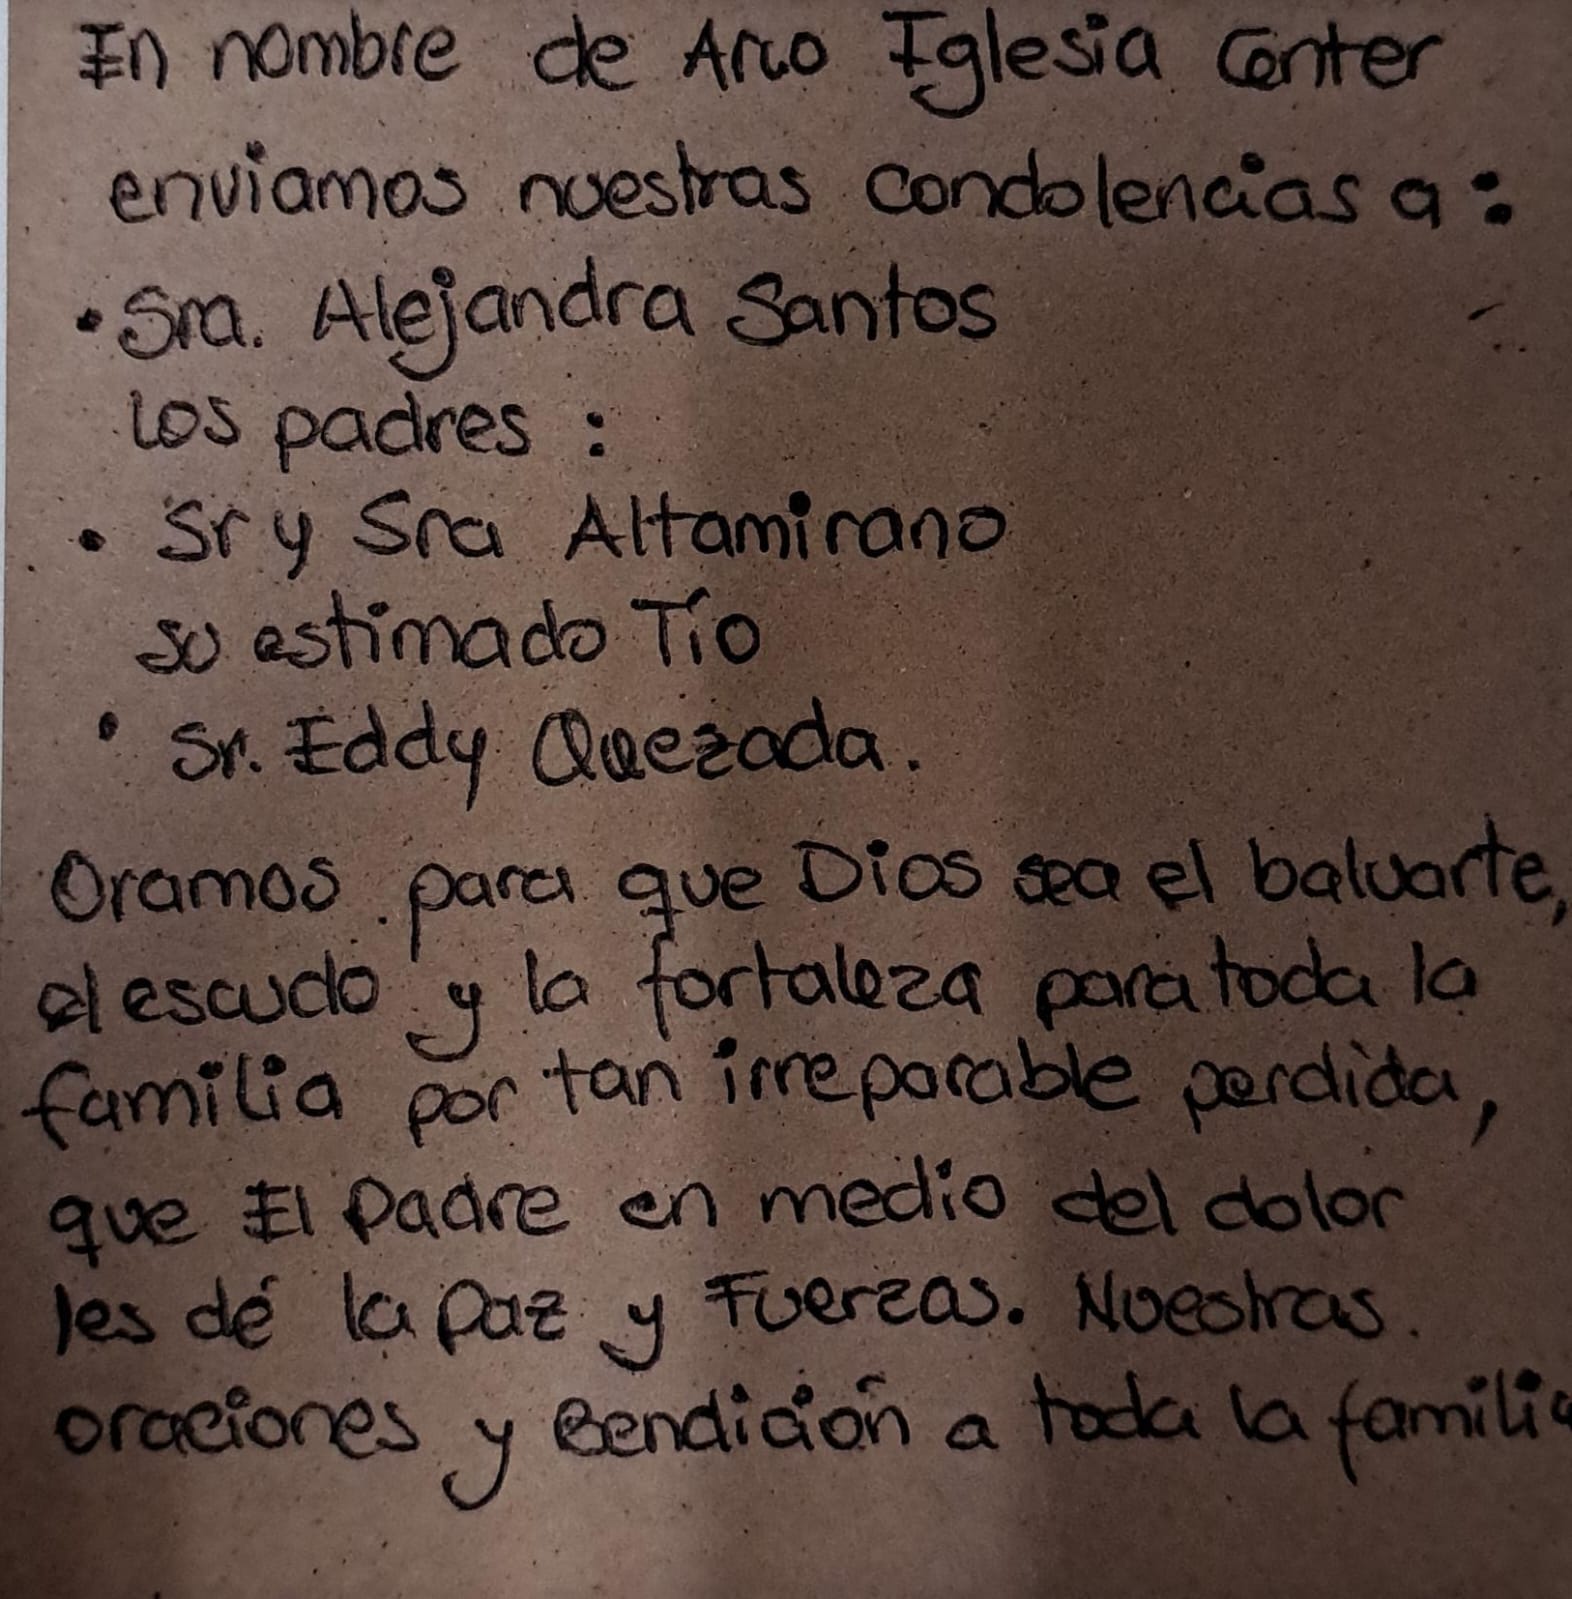 En nombre de Arco Iglesia Center
enviamos nuestras condolencias a:
• Sra. Alejandra Santos
Los padres:
• Sr y Sra Altamirano
su estimado Tío
• Sr. Eddy Quezada.
Oramos para que Dios sea el baluarte,
el escudo y la fortaleza para toda la
familia por tan irreparable perdida,
que El Padre en medio del dolor
les dé la Paz y Fuerzas. Nuestras
oraciones y Bendición a toda la familia